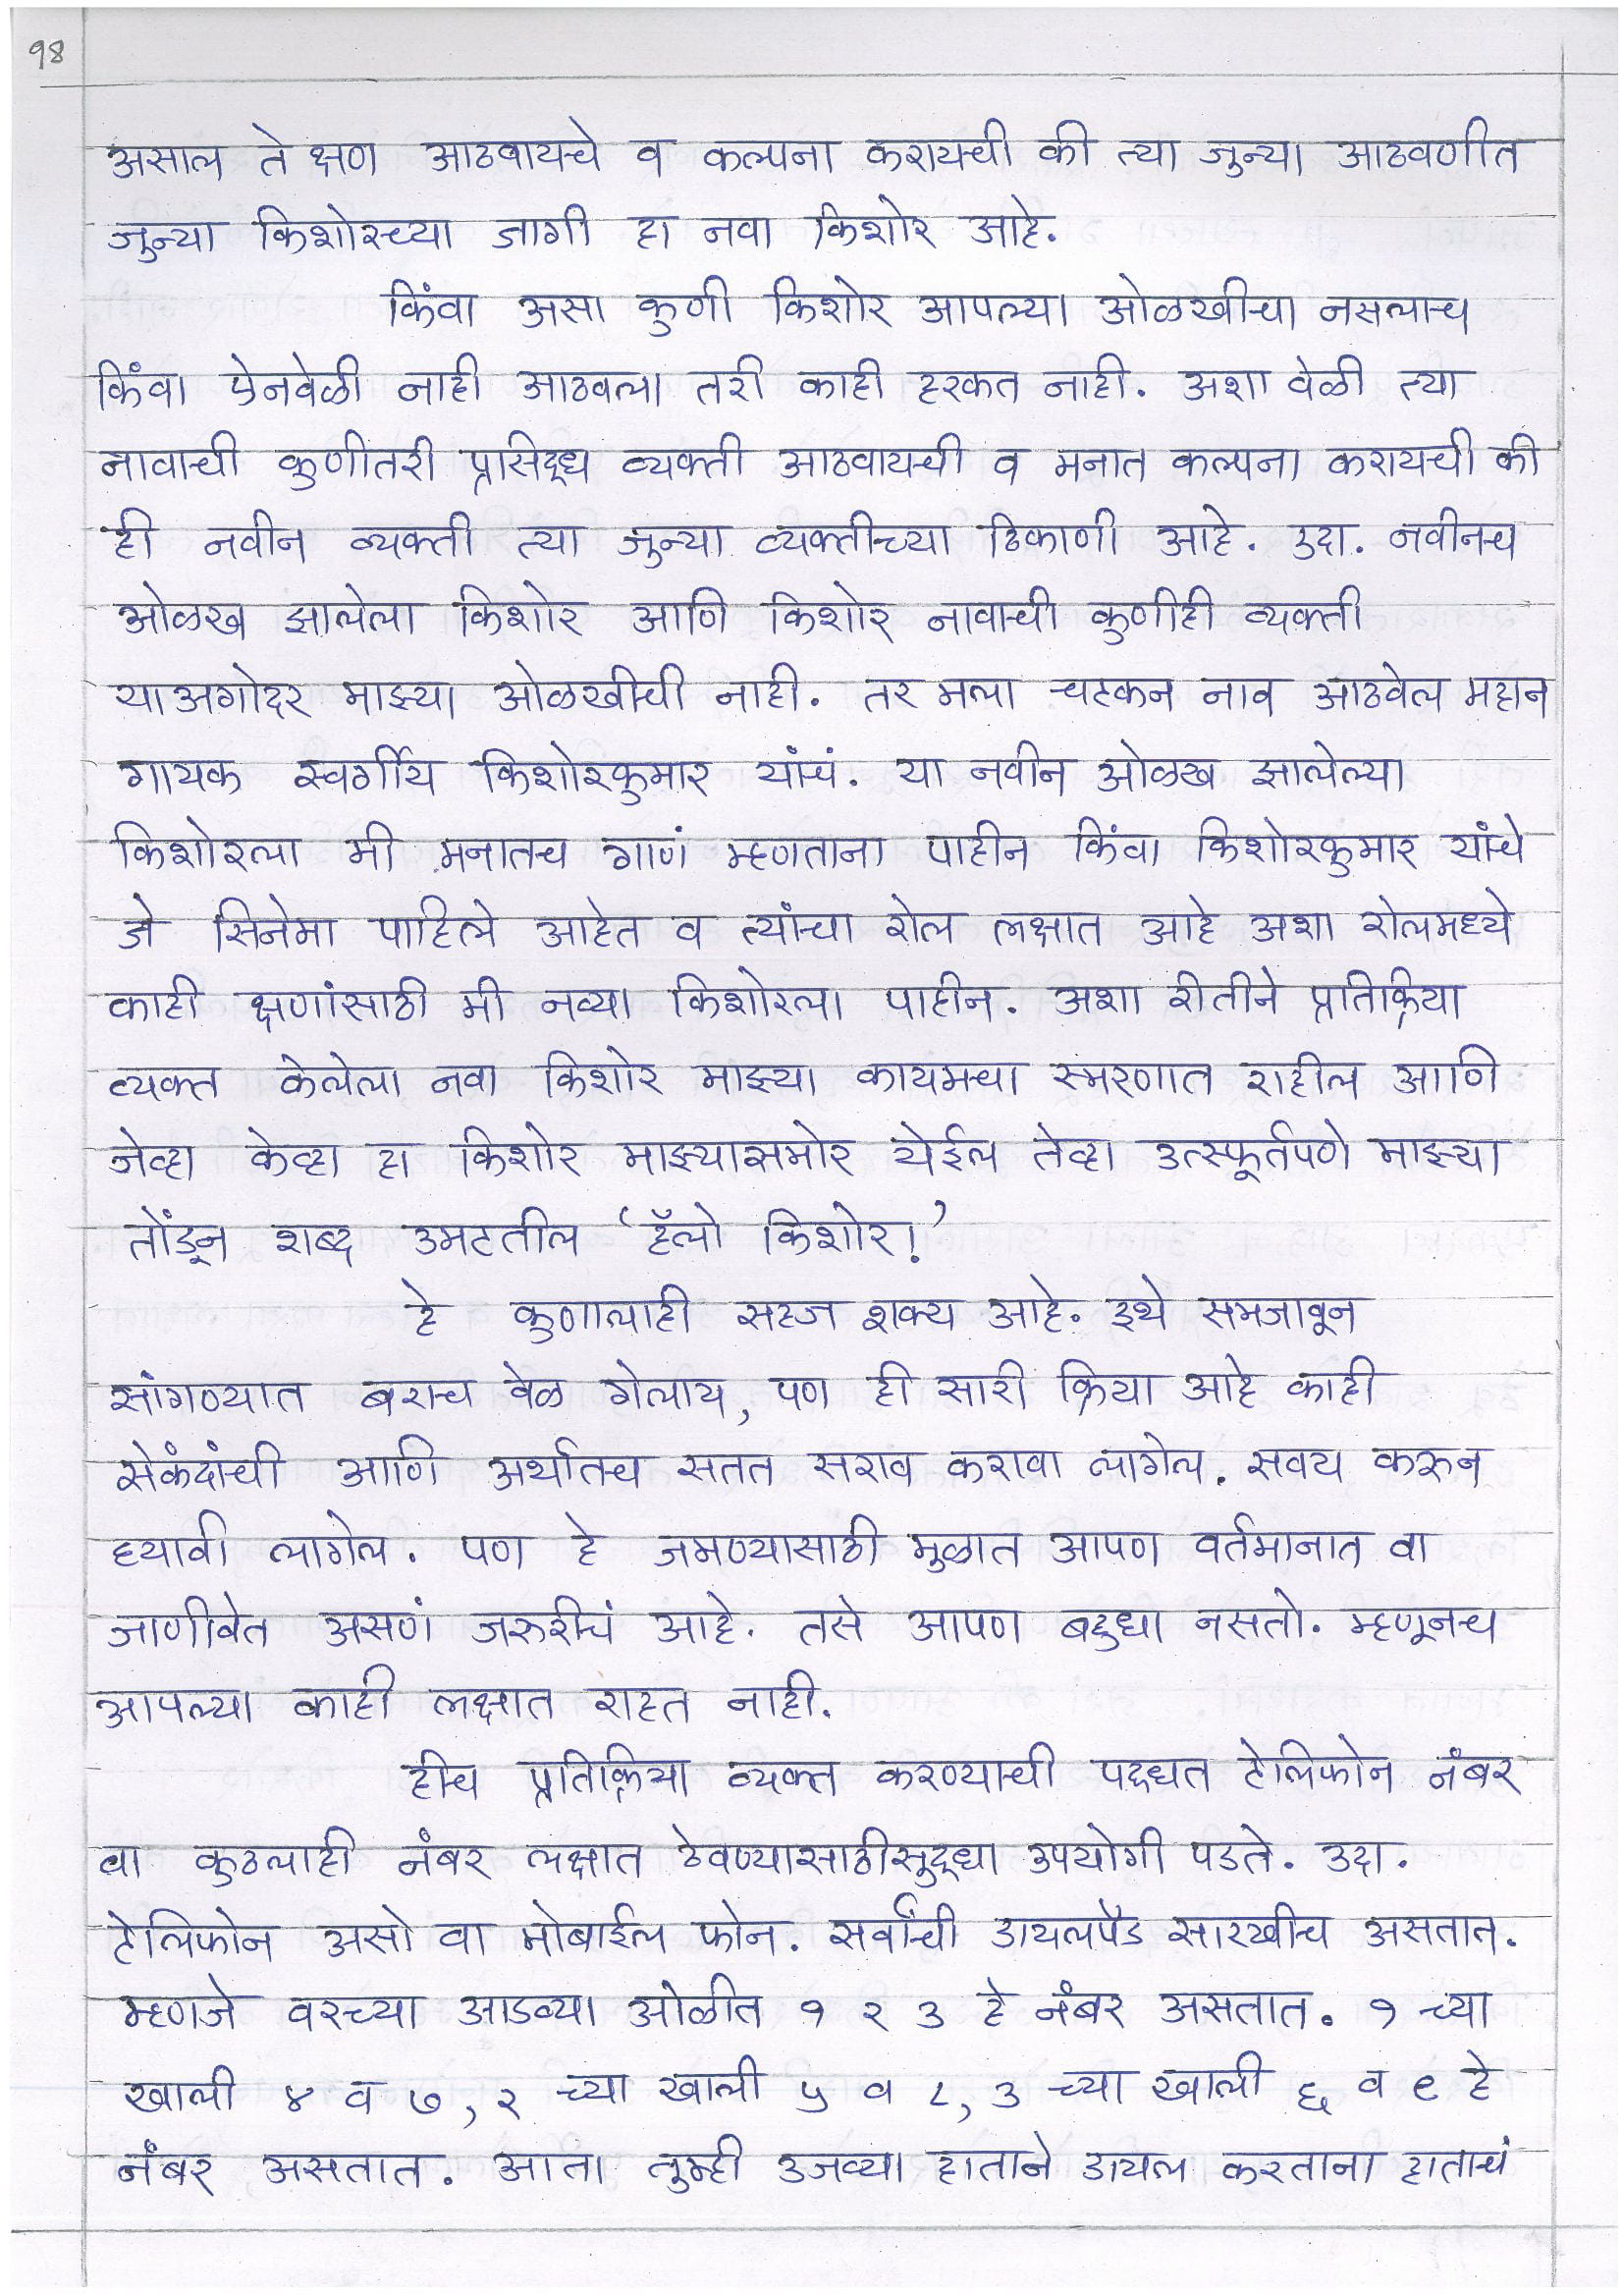 १४
असाल ते क्षण आठवायचे व कल्पना करायची की त्या जुन्या आठवणीत
जुन्या किशोरच्या जागी हा नवा किशोर आहे.
किंवा असा कुणी किशोर आपल्या ओळखीचा नसलाच
किंवा ऐनवेळी नाही आठवला तरी काही हरकत नाही. अशा वेळी त्या
नावाची कुणीतरी प्रसिद्ध व्यक्ती आठवायची व मनात कल्पना करायची की
ही नवीन व्यक्ती त्या जुन्या व्यक्तीच्या ठिकाणी आहे. उदा. नवीनच
ओळख झालेला किशोर आणि किशोर नावाची कुणीही व्यक्ती
याअगोदर माझ्या ओळखीची नाही. तर मला चटकन नाव आठवेल महान
गायक स्वर्गीय किशोरकुमार यांचं. या नवीन ओळख झालेल्या
किशोरला मी मनातच गाणं म्हणताना पाहीन किंवा किशोरकुमार यांचे
जे सिनेमा पाहिले आहेत व त्यांचा रोल लक्षात आहे अशा रोलमध्ये
काही क्षणांसाठी मी नव्या किशोरला पाहीन. अशा रीतीने प्रतिक्रिया
व्यक्त केलेला नवा किशोर माझ्या कायमचा स्मरणात राहील आणि
जेव्हा केव्हा हा किशोर माझ्यासमोर येईल तेव्हा उत्स्फूर्तपणे माझ्या
तोंडून शब्द उमटतील ‘हॅलो किशोर!’
हे कुणालाही सहज शक्य आहे. इथे समजावून
सांगण्यात बराच वेळ गेलाय, पण ही सारी क्रिया आहे काही
सेकंदांची आणि अर्थातच सतत सराव करावा लागेल. सवय करून
घ्यावी लागेल. पण हे जमण्यासाठी मुळात आपण वर्तमानात वा
जाणीवेत असणं जरुरीचं आहे. तसे आपण बहुधा नसतो. म्हणूनच
आपल्या काही लक्षात राहत नाही.
हीच प्रतिक्रिया व्यक्त करण्याची पद्धत टेलिफोन नंबर
वा कुठलाही नंबर लक्षात ठेवण्यासाठीसुद्धा उपयोगी पडते. उदा.
टेलिफोन असो वा मोबाईल फोन. सर्वांची डायलपॅड सारखीच असतात.
म्हणजे वरच्या आडव्या ओळीत १ २ ३ हे नंबर असतात. १ च्या
खाली ४ व ७, २ च्या खाली ५ व ८, ३ च्या खाली ६ व ९ हे
नंबर असतात. आता तुम्ही उजव्या हाताने डायल करताना हाताचं